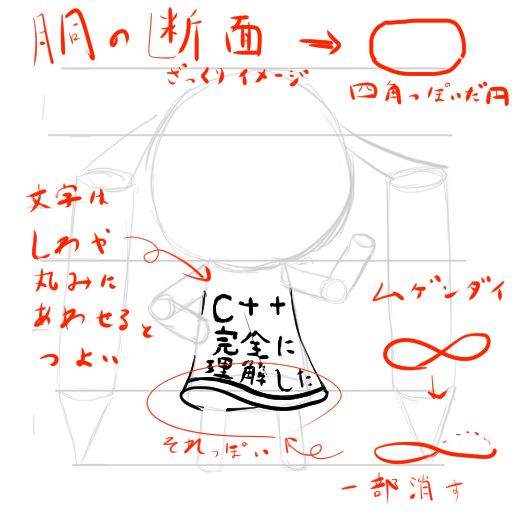 胴の断面 →
ざっくりイメージ
四角っぽいだ円
文字は
しわや
丸みに
あわせると
つよい
C++
完全に
理解した
ムゲンダイ
それっぽい
一部消す